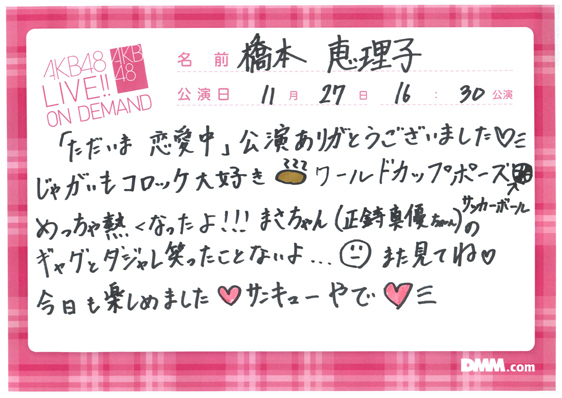 AKB48
LIVE!!
ON DEMAND
AKB
48
名前 橋本 恵理子
公演日 11月 27日 16:30公演
「ただいま 恋愛中」公演ありがとうございました♡
じゃがいもコロッケ大好き ワールドカップポーズ
サッカーボール
めっちゃ熱くなったよ!!! まさちゃん(正鋳真優ちゃん)の
ギャグとダジャレ笑ったことないよ... また見てね♡
今日も楽しめました♥サンキューやで♥
DMM.com